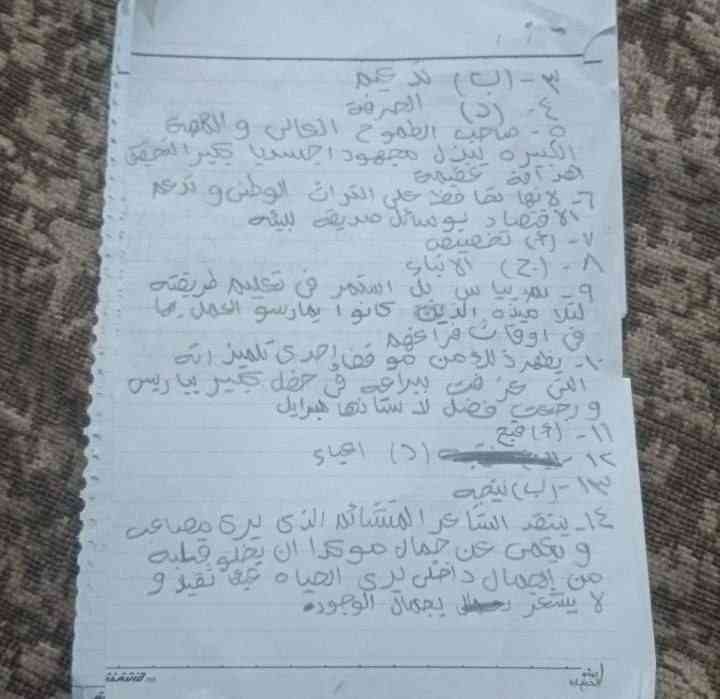 ٣-(ب) تدعيم
٤- (د) الصرفة
٥- صاحب الطموح العالى و الهمة
الكبيرة يبذل مجهودا جسديا كبير التحقيق
اهدافه عظيمة
٦- لانها تحافظ على التراث الوطنى و تدعم
الاقتصاد بوسائل صديقه لبيئه
٧- (أ) تخصيصه
٨- (ج) الانباء
٩- لم ييأس بل استمر فى تعليم طريقته
لتلاميذه الذين كانوا يمارسو العمل بها
فى اوقات فراغهم
١٠- يظهر ذلك من موقف إحدى تلميذاته
التى عزفت ببراعه فى حفل كبير بباريس
و رجعت فضل لاستاذها برايل
١١- (أ) قبح
١٢- (د) اعياء
١٣-(ب) نتيجه
١٤- ينتقد الشاعر المتشائم الذى يرى مصاعب
و يعمى عن جمال موكدا ان يخلو قبله
من الجمال داخلى يرى الحياه و
لا يشعر بجمال الوجود.